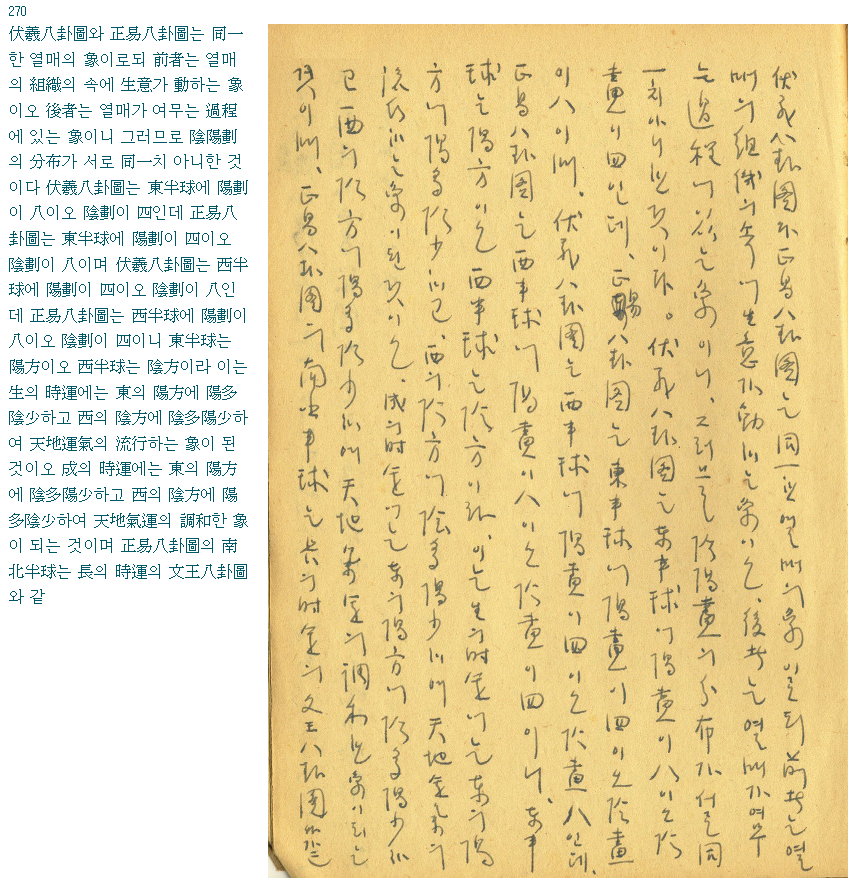 270
伏羲八卦圖와 正易八卦圖는 同一
한 열매의 象이로되 前者는 열매
의 組織의 속에 生意가 動하는 象
이오 後者는 열매가 여무는 過程
에 있는 象이니 그러므로 陰陽劃
의 分布가 서로 同一치 아니한 것
이다 伏羲八卦圖는 東半球에 陽劃
이 八이오 陰劃이 四인데 正易八
卦圖는 東半球에 陽劃이 四이오
陰劃이 八이며 伏羲八卦圖는 西半
球에 陽劃이 四이오 陰劃이 八인
데 正易八卦圖는 西半球에 陽劃이
八이오 陰劃이 四이니 東半球는
陽方이오 西半球는 陰方이라 이는
生의 時運에는 東의 陽方에 陽多
陰少하고 西의 陰方에 陰多陽少하
여 天地運氣의 流行하는 象이 된
것이오 成의 時運에는 東의 陽方
에 陰多陽少하고 西의 陰方에 陽
多陰少하여 天地氣運의 調和한 象
이 되는 것이며 正易八卦圖의 南
北半球는 長의 時運의 文王八卦圖
와 같
伏羲八卦圖와 正易八卦圖는 同一한 열매의 象이로되 前者는 열
매의 組織의 속에 生意가 動하는 象이오, 後者는 열매가 여무
는 過程에 있는 象이니, 그러므로 陰陽畫의 分布가 서로 同
一치 아니한 것이다。伏羲八卦圖는 東半球에 陽畫이 八이오 陰
畫이 四인데, 正易八卦圖는 東半球에 陽畫이 四이오 陰畫
이 八이며, 伏羲八卦圖는 西半球에 陽畫이 四이오 陰畫 八인데,
正易八卦圖는 西半球에 陽畫이 八이오 陰畫이 四이니, 東半
球는 陽方이오 西半球는 陰方이라, 이는 生의 時運에는 東의 陽
方에 陽多陰少하고, 西의 陰方에 陰多陽少하여 天地運氣의
流行하는 象이 된 것이오, 成의 時運에는 東의 陽方에 陰多陽少하
고 西의 陰方에 陽多陰少하여 天地氣運의 調和한 象이 되는
것이며, 正易八卦圖의 南北半球는 長의 時運의 文王八卦圖와 같